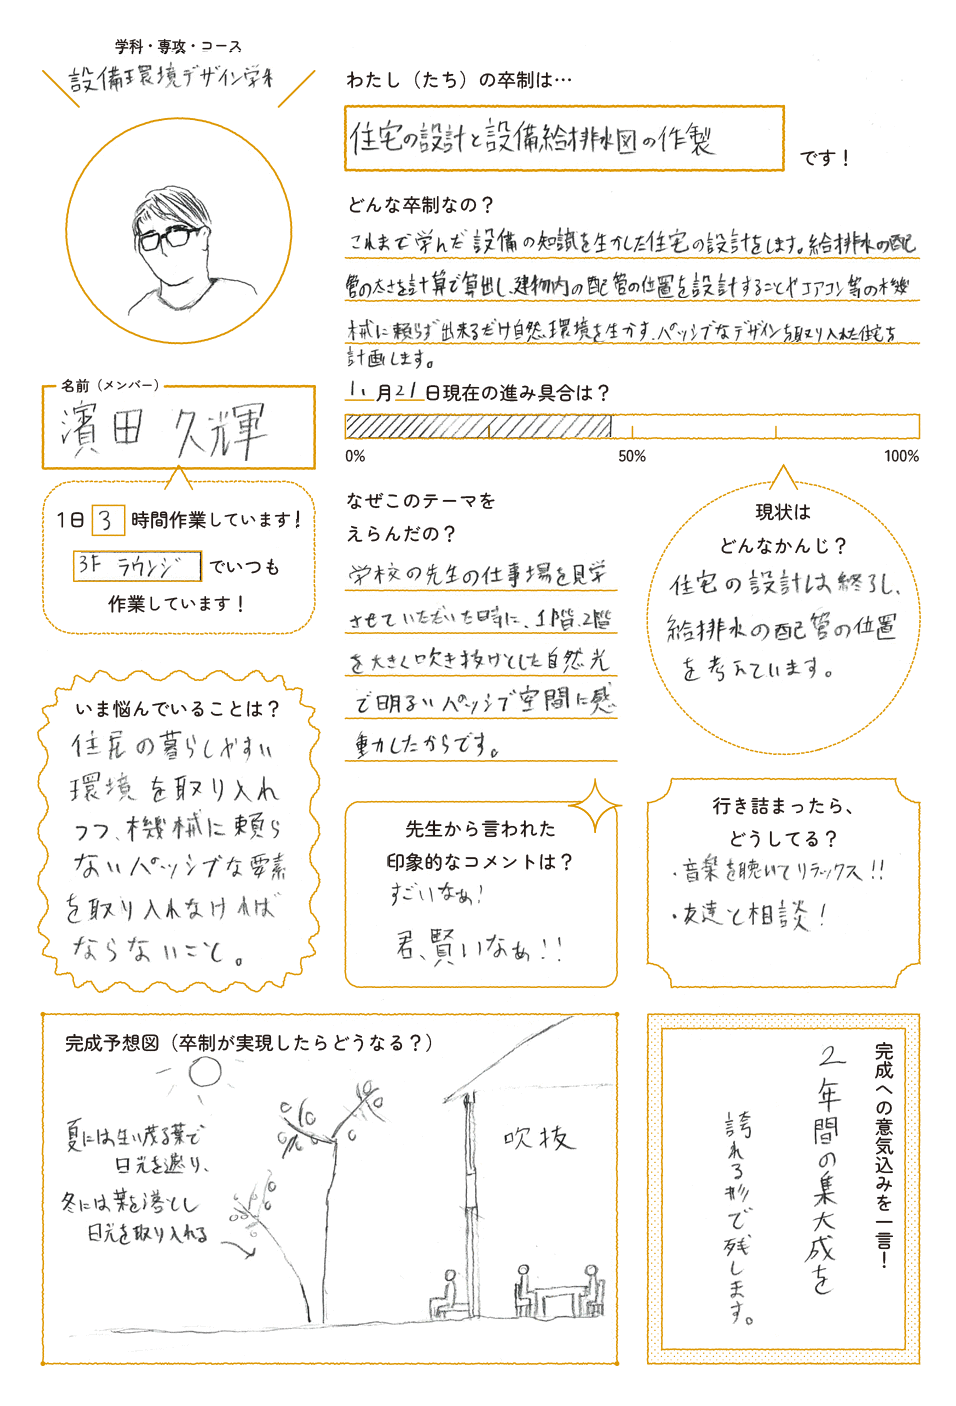 学科・専攻・コース
設備環境デザイン学科
わたし（たち）の卒制は…
住宅の設計と設備給排水図の作製
です！
どんな卒制なの？
これまで学んだ設備の知識を生かした住宅の設計をします。給排水の配
管の太さを計算で算出し、建物内の配管の位置を設計することやエアコン等の機
械に頼らず出来るだけ自然環境を生かす、パッシブなデザインを取り入れた住宅を
計画します。
名前（メンバー）
濱田 久輝
11月21日現在の進み具合は？
0% 50% 100%
1日 3 時間作業しています！
3F ラウンジ でいつも
作業しています！
なぜこのテーマを
えらんだの？
学校の先生の仕事場を見学
させていただいた時に、1階、2階
を大きく吹き抜けとした自然光
で明るいパッシブ空間に感
動したからです。
現状は
どんなかんじ？
住宅の設計は終了し、
給排水の配管の位置
を考えています。
いま悩んでいることは？
住居の暮らしやすい
環境を取り入れ
つつ、機械に頼ら
ないパッシブな要素
を取り入れなければ
ならないこと。
先生から言われた
印象的なコメントは？
すごいなぁ！
君、賢いなぁ！！
行き詰まったら、
どうしてる？
・音楽を聴いてリラックス！！
・友達と相談！
完成予想図（卒制が実現したらどうなる？）
夏には生い茂る葉で
日光を遮り、
冬には葉を落とし
日光を取り入れる
吹抜
完成への意気込みを一言！
2年間の集大成を
誇れる形で残します。